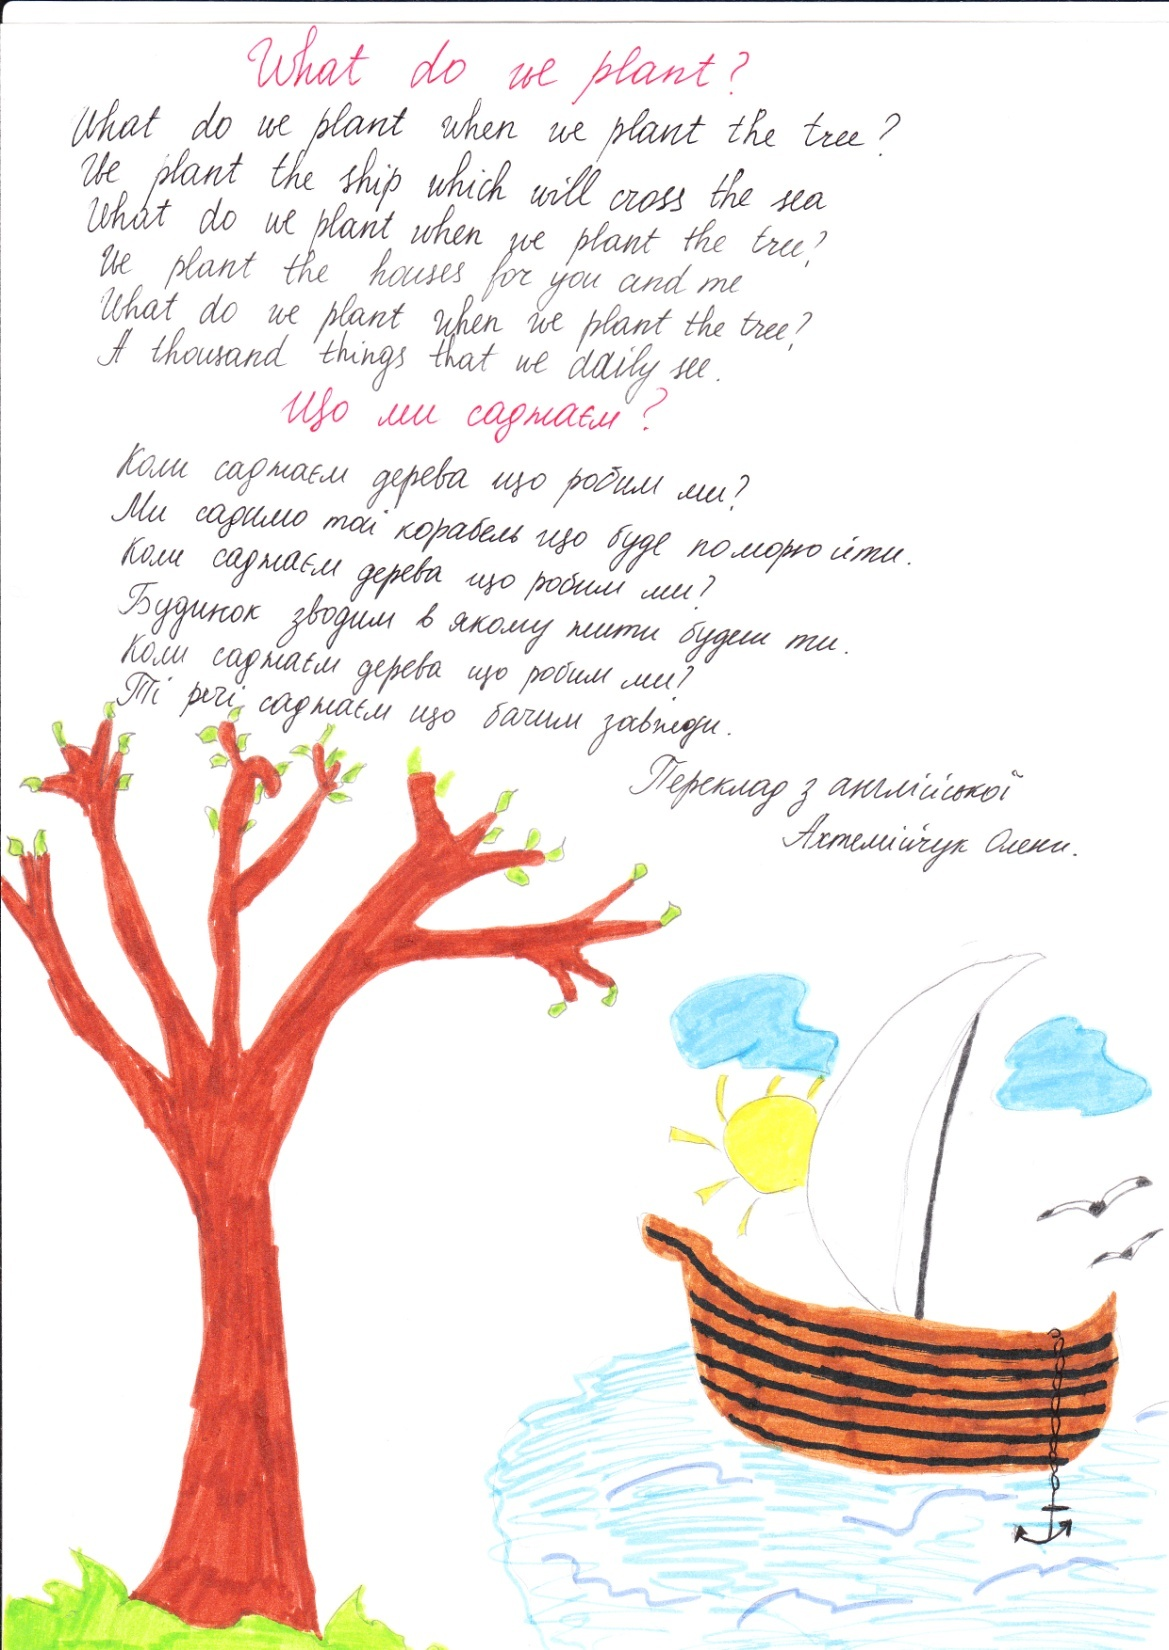 What do we plant?
What do we plant when we plant the tree?
We plant the ship which will cross the sea
What do we plant when we plant the tree?
We plant the houses for you and me
What do we plant when we plant the tree?
A thousand things that we daily see.
Що ми саджаєм?
Коли саджаєм дерева що робим ми?
Ми садимо той корабель що буде по морю йти.
Коли саджаєм дерева що робим ми?
Будинок зводим в якому жити будеш ти.
Коли саджаєм дерева що робим ми?
Ті речі саджаєм що бачим завжди.
Переклад з англійської
Ахтемійчук Олени.